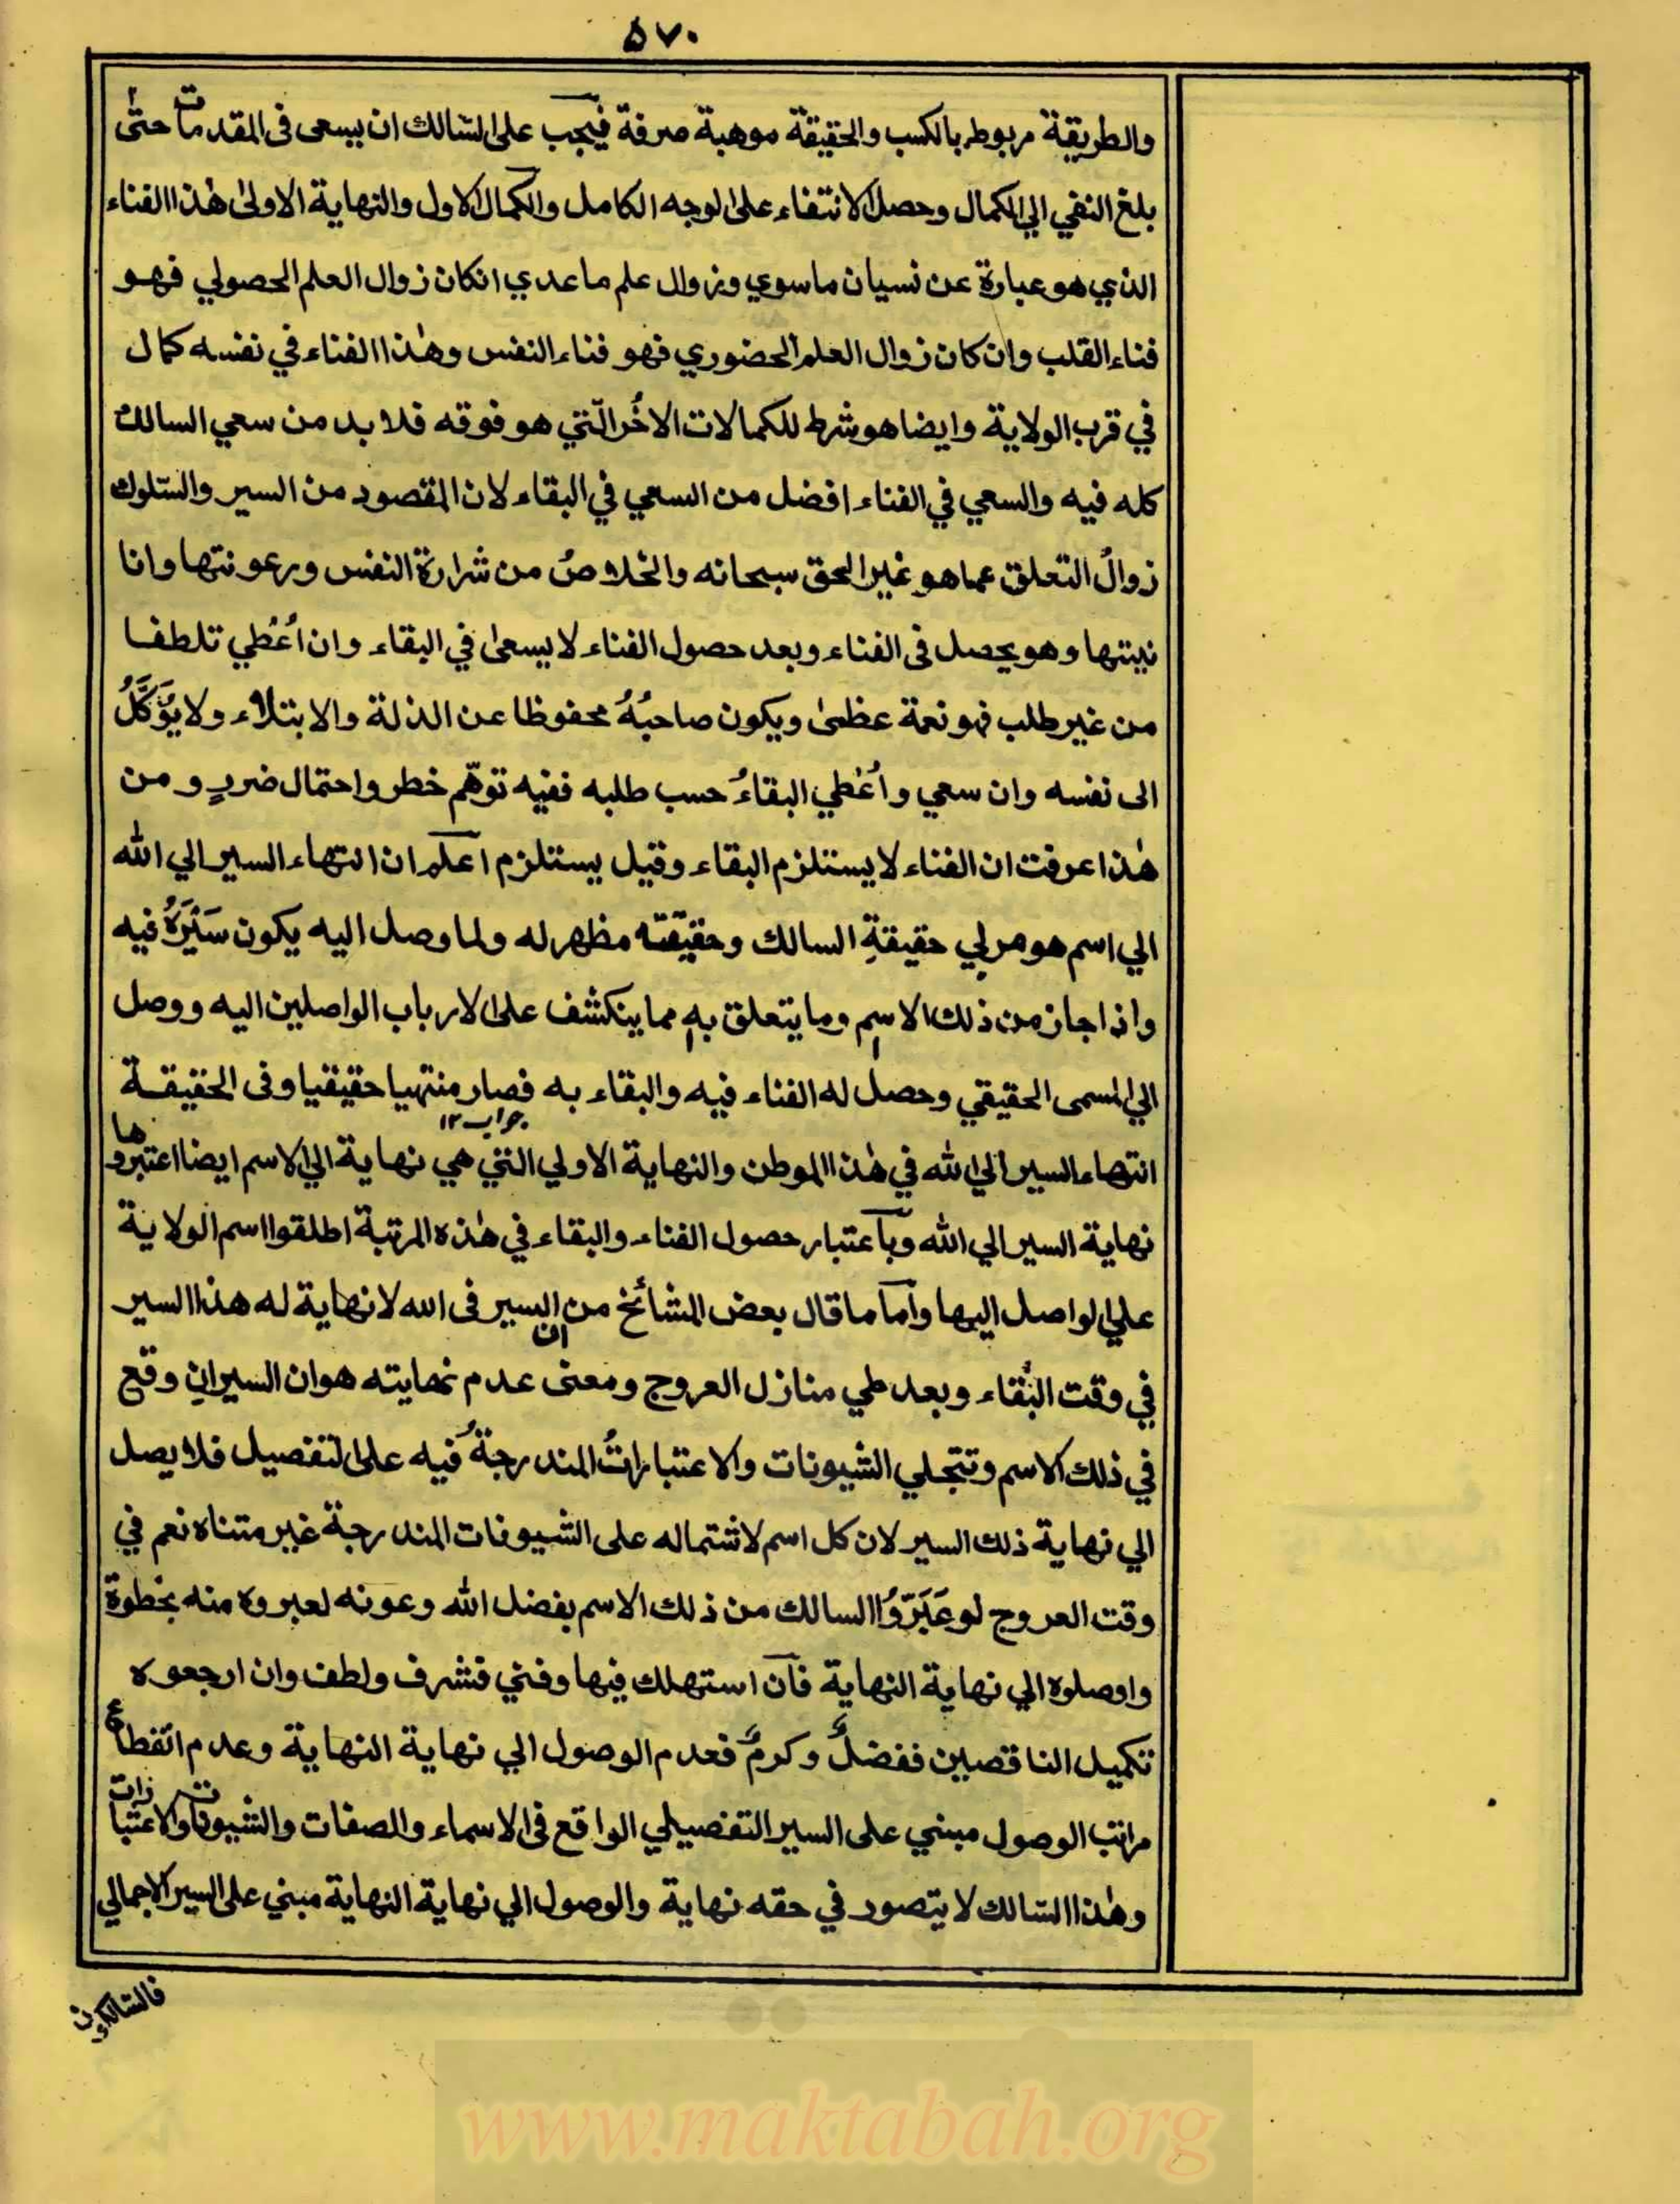 ٥٧٠
والطريقة مربوط بالكسب والحقيقة موهبة صرفة فيجب على السالك ان يسعى فى المقدمات حتى
بلغ النفي الي الكمال وحصل الانتفاء على الوجه الكامل والكمال الاول والنهاية الاولى هٰذا الفناء
الذي هو عبارة عن نسيان ماسوي وزوال علم ماعدي انكان زوال العلم الحصولي فهو
فناء القلب وان كان زوال العلم الحضوري فهو فناء النفس وهٰذا الفناء في نفسه كمال
في قرب الولاية وايضا هو شرط للكمالات الاخُر الّتي هو فوقه فلا بد من سعي السالك
كله فيه والسعي في الفناء افضل من السعي في البقاء لان المقصود من السير والسّلوك
زوالُ التعلق عما هو غير الحق سبحانه والخلاصُ من شرارة النفس ورعونتها وانا
نيتها وهو يحصل فى الفناء وبعد حصول الفناء لا يسعىٰ في البقاء وان اُعْطي تلطفا
من غير طلب فهو نعمة عظمىٰ ويكون صاحبُهُ محفوظا عن الذلة والابتلاء ولا يُؤَكَّلُ
الى نفسه وان سعي واُعْطي البقاءُ حسب طلبه ففيه توهّم خطر واحتمال ضررٍ ومن
هٰذا عرفت ان الفناء لا يستلزم البقاء وقيل يستلزم اعلم ان انتهاء السير الي الله
الي اسم هو مربي حقيقةِ السالك وحقيقته مظهر له ولما وصل اليه يكون سَيْرَهُ فيه
واذا جاز من ذلك الاسم وما يتعلق به مما ينكشف على الارباب الواصلين اليه ووصل
الي المسمى الحقيقي وحصل له الفناء فيه والبقاء به فصار منتهيا حقيقيا وفى الحقيقة
جواب ١٢
انتهاء السير الي الله في هٰذا الموطن والنهاية الاولي التي هي نهاية الي الاسم ايضا اعتبروها
نهاية السير الي الله وباعتبار حصول الفناء والبقاء في هٰذه المرتبة اطلقوا اسم الولاية
علي الواصل اليها وأما ما قال بعض المشائخ من ان السير فى الله لا نهاية له هذا السير
في وقت البقاء وبعد طي منازل العروج ومعنى عدم نهايته هو ان السير ان وقع
في ذلك الاسم وتتجلي الشيونات والاعتباراتُ المندرجةُ فيه على التفصيل فلا يصل
الي نهاية ذلك السير لان كل اسم لاشتماله على الشيونات المندرجة غير متناه نعم في
وقت العروج لو عَبَرّوُا السالك من ذلك الاسم بفضل الله وعونه لعبروه منه بخطوة
واوصلوه الي نهاية النهاية فان استهلك فيها وفني فشرف ولطف وان ارجعوه
تكميل الناقصين ففضلٌ وكرمٌ فعدم الوصول الي نهاية النهاية وعدم انقطاع
مراتب الوصول مبني على السير التفصيلي الواقع فى الاسماء والصفات والشيونات والاعتبارات
وهٰذا السّالك لا يتصور في حقه نهاية والوصول الي نهاية النهاية مبني على السير الاجمالي
www.maktabah.org